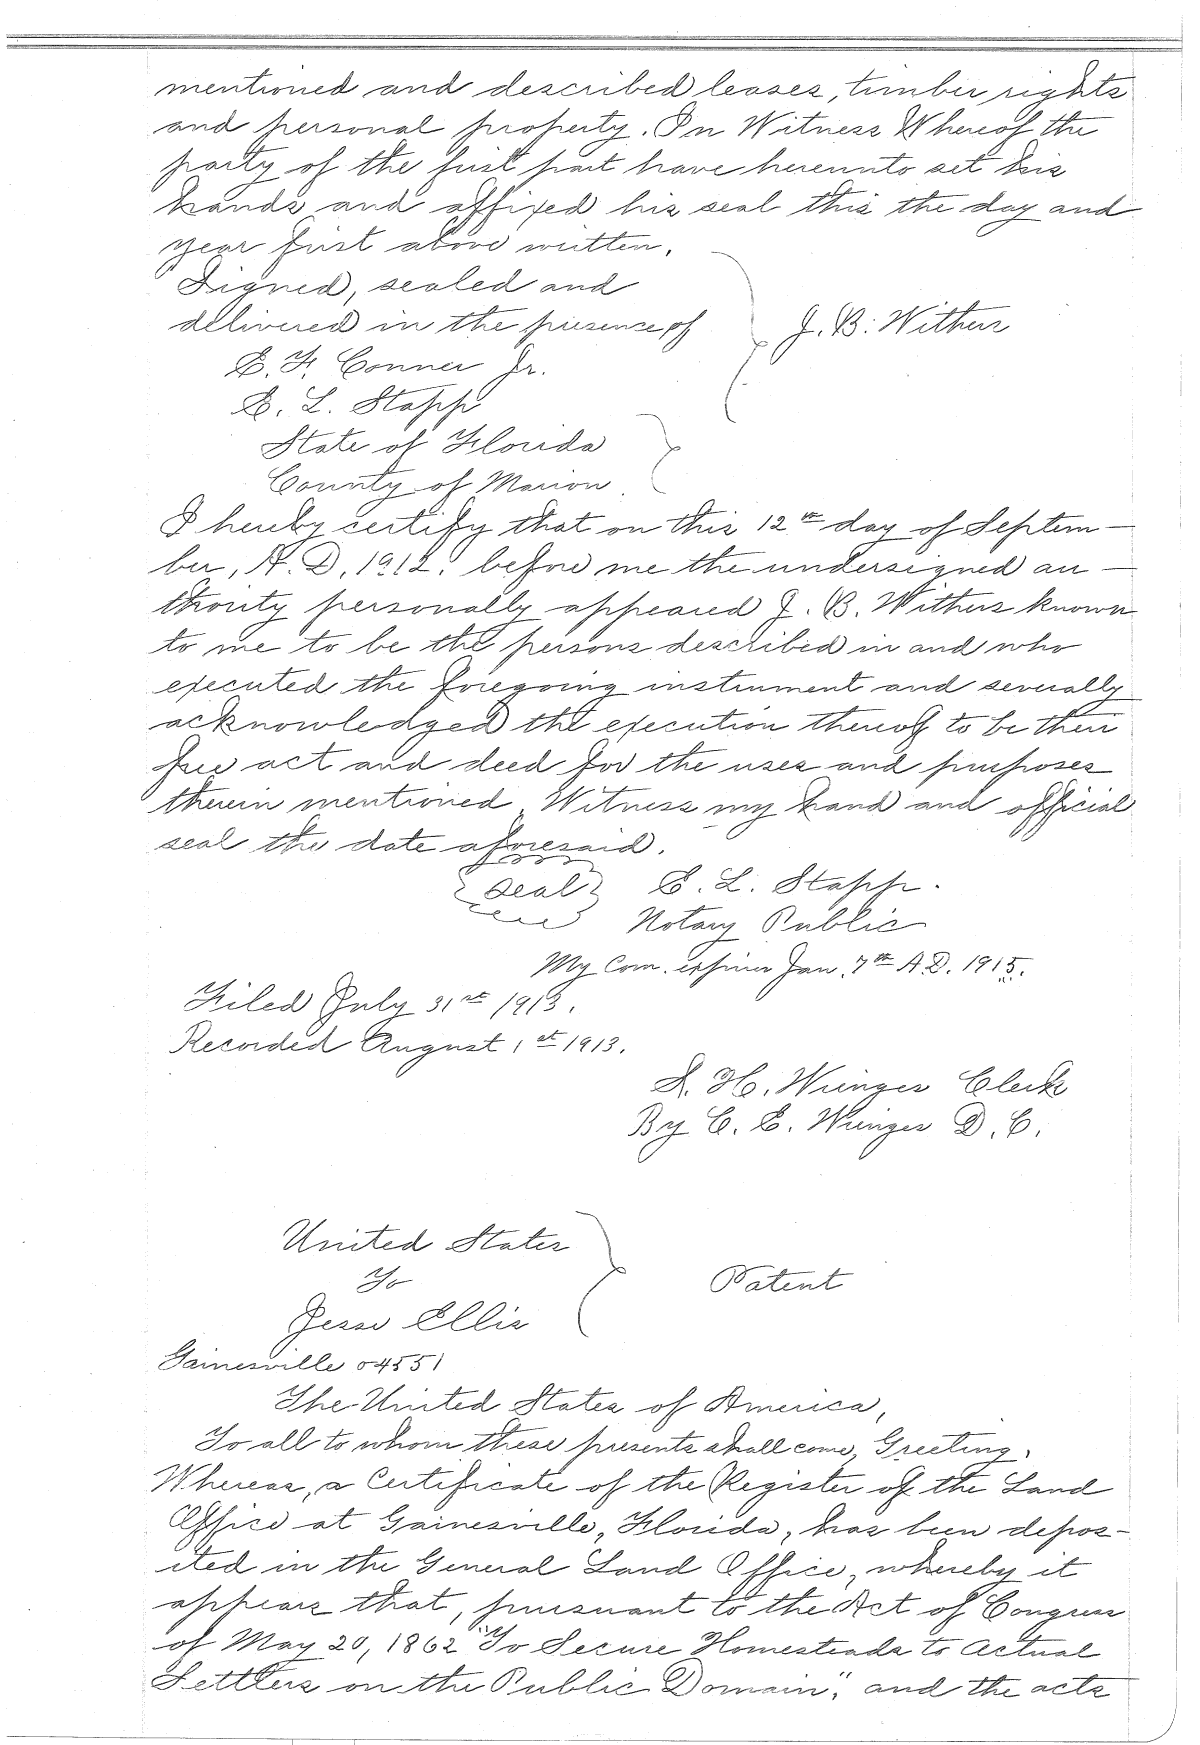 mentioned and described leases, timber rights
and personal property. In Witness Whereof the
party of the first part have hereunto set his
hands and affixed his seal this the day and
year first above written.
Signed, sealed and
delivered in the presence of
J. B. Withers
E. F. Conner Jr.
E. L. Stapp
State of Florida
County of Marion
I hereby certify that on this 12th day of Septem-
ber, A. D. 1912. before me the undersigned au-
thority personally appeared J. B. Withers known
to me to be the persons described in and who
executed the foregoing instrument and severally
acknowledged the execution thereof to be their
free act and deed for the uses and purposes
therein mentioned. Witness my hand and official
seal the date aforesaid.
Seal E. L. Stapp.
Notary Public
My Com. expires Jan. 7th A.D. 1915.
Filed July 31st 1913.
Recorded August 1st 1913.
S. H. Wienges Clerk
By C. E. Wienges D. C.
United States
To
Patent
Jesse Ellis
Gainesville 04551
The United States of America,
To all to whom these presents shall come, Greeting.
Whereas, a Certificate of the Register of the Land
Office at Gainesville, Florida, has been depos-
ited in the General Land Office, whereby it
appears that, pursuant to the Act of Congress
of May 20, 1862 "To Secure Homesteads to Actual
Settlers on the Public Domain", and the acts